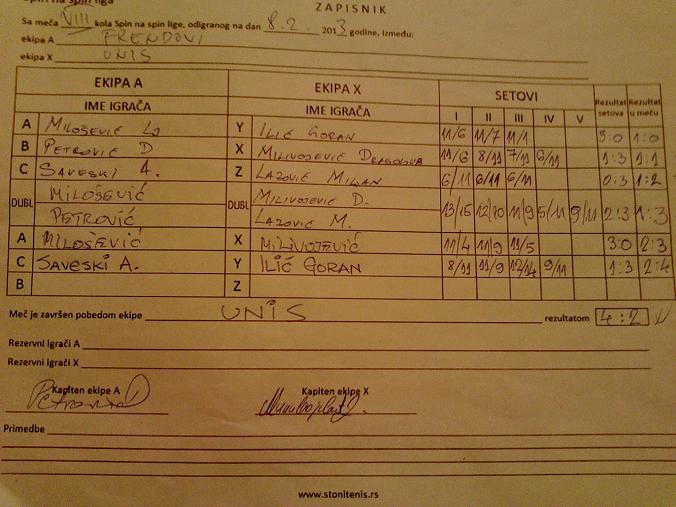 ZAPISNIK
Sa meča VIII kola Spin na spin lige, odigranog na dan 8.2. 2013 godine, između:
ekipa A FRENDOVI
ekipa X UNIS
EKIPA A EKIPA X SETOVI Rezultat setova Rezultat u meču
IME IGRAČA IME IGRAČA I II III IV V
A MILOŠEVIĆ LJ Y ILIĆ GORAN 11/6 11/7 11/1 3:0 1:0
B PETROVIĆ D X MILIVOJEVIĆ DRAGOLJUB 11/6 8/11 7/11 6/11 1:3 1:1
C SAVESKI A. Z LAZOVIĆ MILAN 6/11 6/11 6/11 0:3 1:2
DUBL MILOŠEVIĆ DUBL MILIVOJEVIĆ D. 13/15 12/10 11/9 5/11 9/11 2:3 1:3
PETROVIĆ LAZOVIĆ M.
A MILOŠEVIĆ X MILIVOJEVIĆ 11/4 11/9 11/5 3:0 2:3
C SAVESKI A. Y ILIĆ GORAN 8/11 11/9 12/14 9/11 1:3 2:4
B Z
Meč je završen pobedom ekipe UNIS rezultatom 4:2
Rezervni igrači A
Rezervni igrači X
Kapiten ekipe A Kapiten ekipe X
Primedbe
www.stonitenis.rs